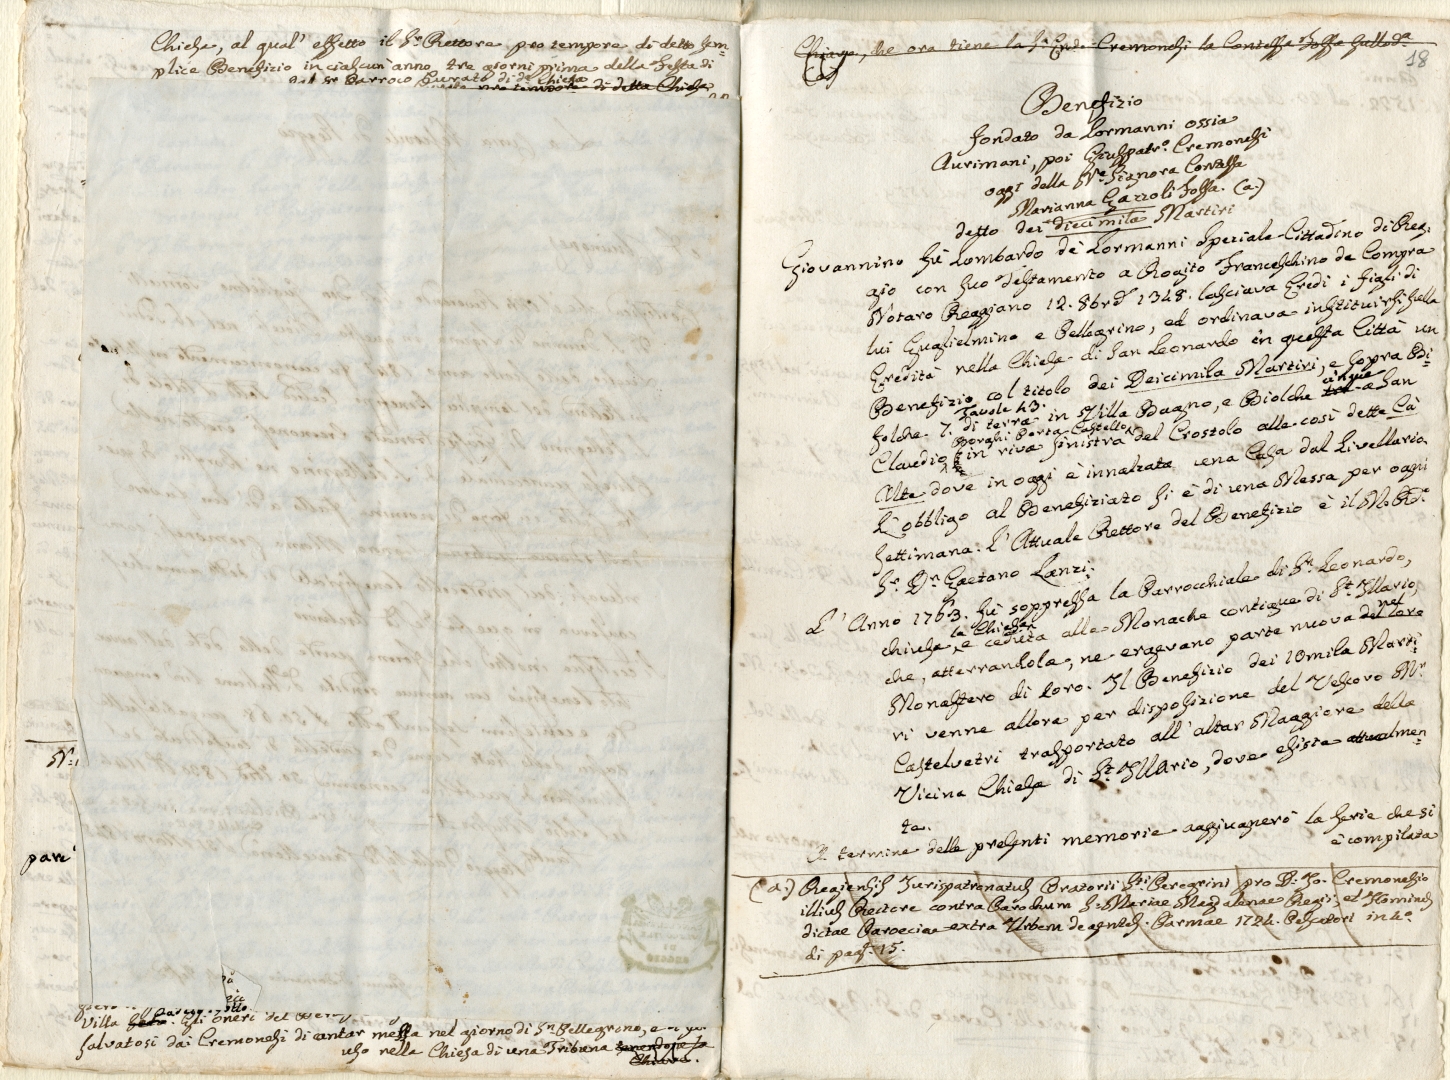 Chiesa, al qual' effetto il Sr. Rettore pro tempore di detto Sem-
plice Benefizio in ciascun' anno tre giorni prima della Festa di
Sr Parroco Curato di da. Chiesa
pro tempore di detta Chiesa
N.
pare
Villa Gli oneri del
salvatosi dai Cremonesi di cantar messa nel giorno di Sn. Pellegrino, e
uso nella Chiesa di una Tribuna tenendone la
Chiave.
Chiave, che ora tiene la Cremonesi la Contessa Fossa
18
Benefizio
fondato da Lormanni ossia
Aurimani, poi Giuspatro. Cremonesi
oggi della Signora Contessa
Marianna Gazzoli Fossa. (a.)
detto dei diecimila Martiri
Giovannino fù Lombardo de Lormanni Speziale Cittadino di Reg-
gio con suo Testamento a Rogito Franceschino da Compra
Notaro Reggiano 12. 8bre 1348. lasciava Eredi i figli di
lui Guglielmino e Pellegrino, ed ordinava instituirsi sulla
Eredità nella Chiesa di San Leonardo in questa Città un
Benefizio col titolo dei Deicimila Martiri, e sopra Bi-
Tavole 43. cinque
folche 7. di terra in Villa Bagno, e Biolche tre a San
Borghi Porta Castello
Claudio, in riva sinistra del Crostolo alle così dette Cà
Alte dove in oggi è innalzata una Casa dal Livellario
L'obbligo al Benefiziato si è di una Messa per ogni
settimana. L'Attuale Rettore del Benefizio è il M. Rdo.
Sr. Dn. Gaetano Lanzi.
L' Anno 1763. fù soppressa la Parrocchiale di Sn. Leonardo,
la Chiesa
chiusa, e ceduta alle Monache contigue di St. Illario,
nel
che, atterrandola, ne ergevano parte nuova del loro
Monastero di loro. Il Benefizio dei 10mila Marti-
ri venne allora per disposizione del Vescovo Mr.
Castelvetri trasportato all' altar Maggiore della
Vicina Chiesa di St. Illario, dove esiste attualmen-
te.
A termine delle presenti memorie aggiugnerò la serie che si
è compilata
(a.) Regiensis Jurispatronatus Oratorii Sti Peregrini pro D. Jo. Cremonesio
illius Rectore contra Parochum S. Mariae Magdalenae Regii, et Homines
dictae Paroeciae extra Urbem degentes. Parmae 1724. Pescatori in 4o.
di pag. 15.